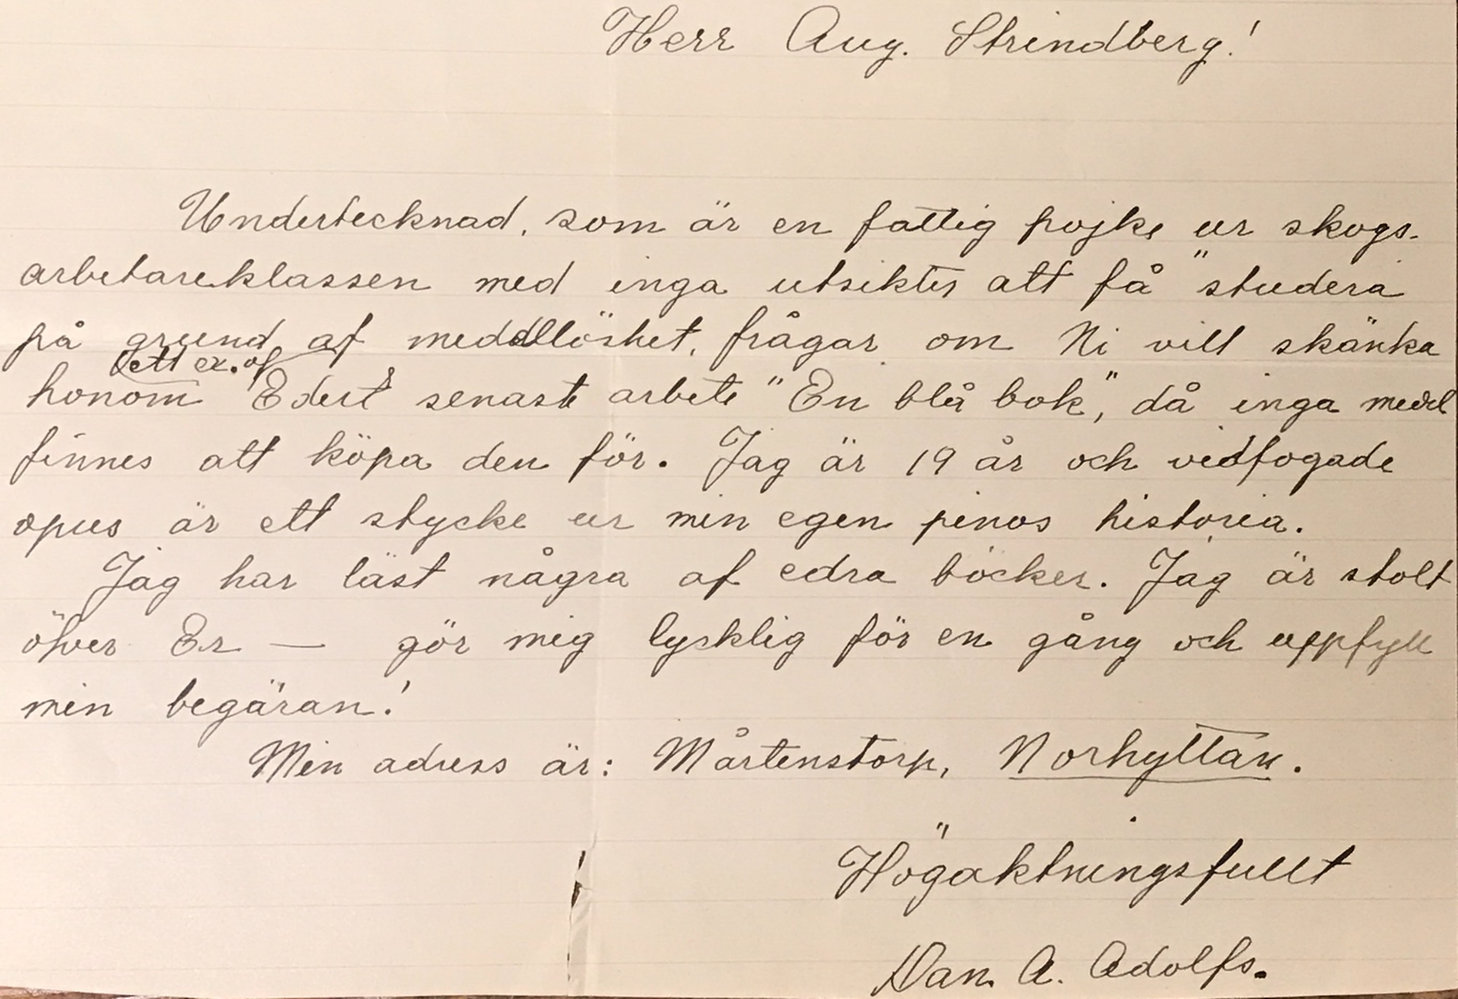 Herr Aug. Strindberg!
Undertecknad, som är en fattig pojke ur skogs-
arbetareklassen med inga utsikter att få "studera"
på grund af medellöshet, frågar om Ni vill skänka
ett ex. af
honom Edert senaste arbete "En blå bok", då inga medel
finnes att köpa den för. Jag är 19 år och vidfogade
opus är ett stycke ur min egen pinos historia.
Jag har läst några af edra böcker. Jag är stolt
öfver Er — gör mig lycklig för en gång och uppfyll
min begäran!
Min adress är: Mårtenstorp, Norhyttan.
Högaktningsfullt
Dan A. Adolfs.